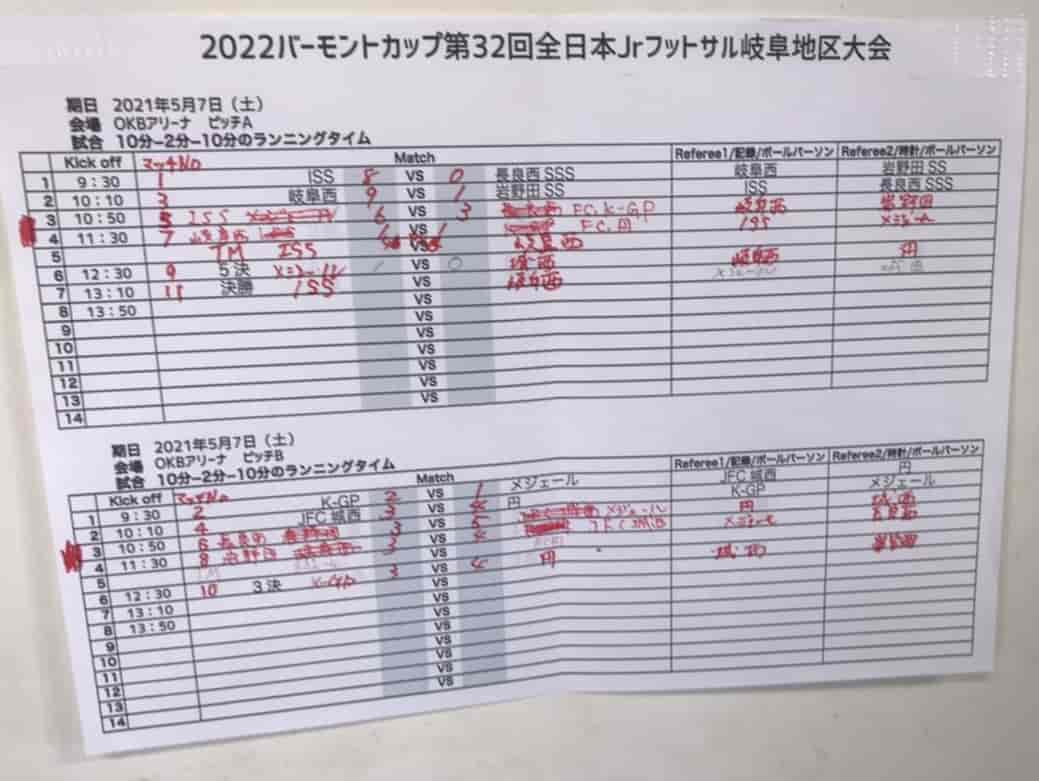 2022バーモントカップ第32回全日本Jrフットサル岐阜地区大会
期日 2021年5月7日（土）
会場 OKBアリーナ ピッチA
試合 10分−2分−10分のランニングタイム
Kick off マッチNo Match Referee1/記録/ボールパーソン Referee2/時計/ボールパーソン
1 9：30 1 ISS 8 VS 0 長良西SSS 岐阜西 岩野田SS
2 10：10 3 岐阜西 9 VS 1 岩野田SS ISS 長良西SSS
3 10：50 5 ISS 6 VS 3 FC.K-GP 岐阜西 岩野田
4 11：30 7 岐阜西 VS FC.円 ISS メジェール
5 TM ISS VS 岐阜西
6 12：30 9 5決 メジェール VS 0 城西 岐阜西 円
7 13：10 11 決勝 ISS VS 岐阜西
8 13：50 VS
9 VS
10 VS
11 VS
12 VS
13 VS
14
期日 2021年5月7日（土）
会場 OKBアリーナ ピッチB
試合 10分−2分−10分のランニングタイム
Kick off マッチNo Match Referee1/記録/ボールパーソン Referee2/時計/ボールパーソン
1 9：30 2 K-GP 2 VS 1 メジェール JFC城西 円
2 10：10 4 JFC城西 3 VS 円 K-GP メジェール
3 10：50 6 長良西 3 VS 5 メジェール 円 城西
4 11：30 8 岩野田 3 VS JFC城西 メジェール 長良西
5 VS
6 12：30 10 3決 K-GP 3 VS 4 円 城西 岩野田
7 13：10 VS
8 13：50 VS
9 VS
10 VS
11 VS
12 VS
13 VS
14